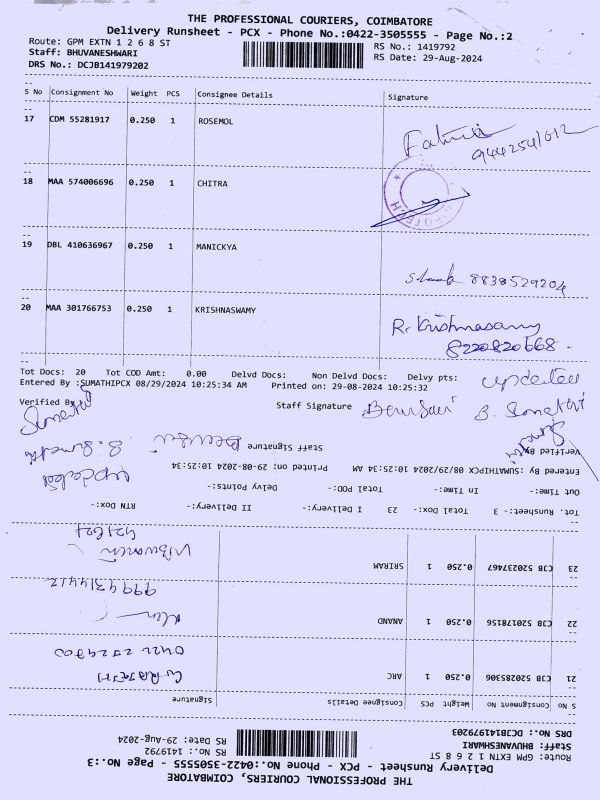 THE PROFESSIONAL COURIERS, COIMBATORE
Delivery Runsheet - PCX - Phone No.:0422-3505555 - Page No.:2
Route: GPM EXTN 1 2 6 8 ST
Staff: BHUVANESHWARI
DRS No.: DCJB141979202
RS No.: 1419792
RS Date: 29-Aug-2024
S No Consignment No Weight PCS Consignee Details Signature
17 CDM 55281917 0.250 1 ROSEMOL
18 MAA 574006696 0.250 1 CHITRA
19 DBL 410636967 0.250 1 MANICKYA
8838529204
20 MAA 301766753 0.250 1 KRISHNASWAMY
R. Krishnasamy
8220820668
Tot Docs: 20 Tot COD Amt: 0.00 Delvd Docs: Non Delvd Docs: Delvy pts:
updated
Entered By :SUMATHIPCX 08/29/2024 10:25:34 AM Printed on: 29-08-2024 10:25:32
Verified By
Staff Signature
THE PROFESSIONAL COURIERS, COIMBATORE
Delivery Runsheet - PCX - Phone No.:0422-3505555 - Page No.:3
Route: GPM EXTN 1 2 6 8 ST
Staff: BHUVANESHWARI
DRS No.: DCJB141979203
RS No.: 1419792
RS Date: 29-Aug-2024
S No Consignment No Weight PCS Consignee Details Signature
21 CJB 520285306 0.250 1 ARC
22 CJB 520178156 0.250 1 ANAND
9994314412
23 CJB 520237467 0.250 1 SRIRAM
Tot. Runsheet:- 3 Total Dox:- 23 I Delivery:- II Delivery:- RTN Dox:-
Out Time:- In Time:- Total POD:- Delvy Points:-
updated
Entered By :SUMATHIPCX 08/29/2024 10:25:34 AM Printed on: 29-08-2024 10:25:34
Verified By
Staff Signature